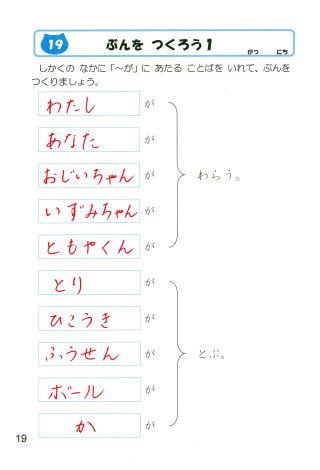 19 ぶんを つくろう1
がつ にち
しかくの なかに「〜が」に あたる ことばを いれて、ぶんを
つくりましょう。
わたし が
あなた が
おじいちゃん が わらう。
いずみちゃん が
ともやくん が
とり が
ひこうき が
ふうせん が とぶ。
ボール が
か が
19